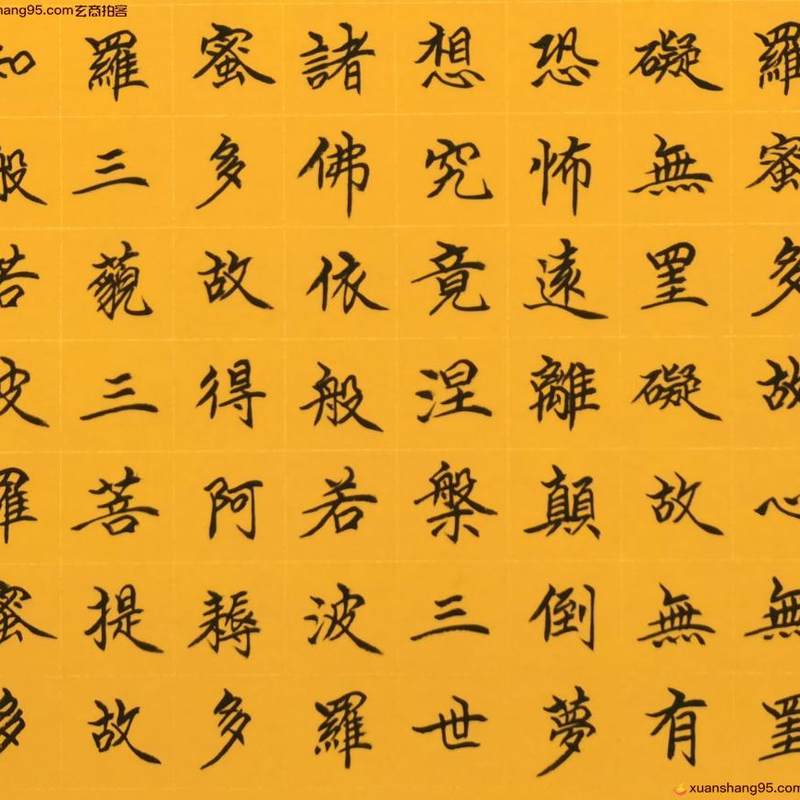 羅蜜多故心無罣
礙無罣礙故無有
恐怖遠離顛倒夢
想究竟涅槃三世
諸佛依般若波羅
蜜多故得阿耨多
羅三藐三菩提故
知般若波羅蜜多
hang95.com玄商拍客
xuanshang95.com